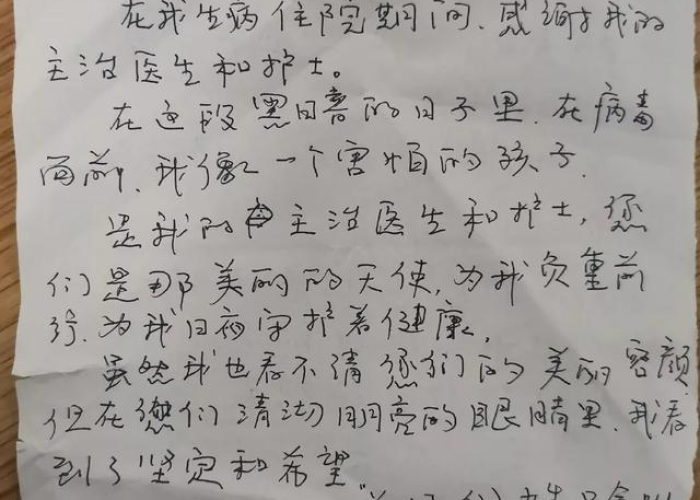 在我生病住院期间.感谢我的
主治医生和护士。
在这段黑暗的日子里.在病毒
面前.我像一个害怕的孩子.
是我的主治医生和护士,您
们是那美丽的天使,为我负重前
行.为我日夜守护着健康,
虽然我也看不清您们的美丽容颜
但在您们清沏明亮的眼睛里.我看
到了坚定和希望